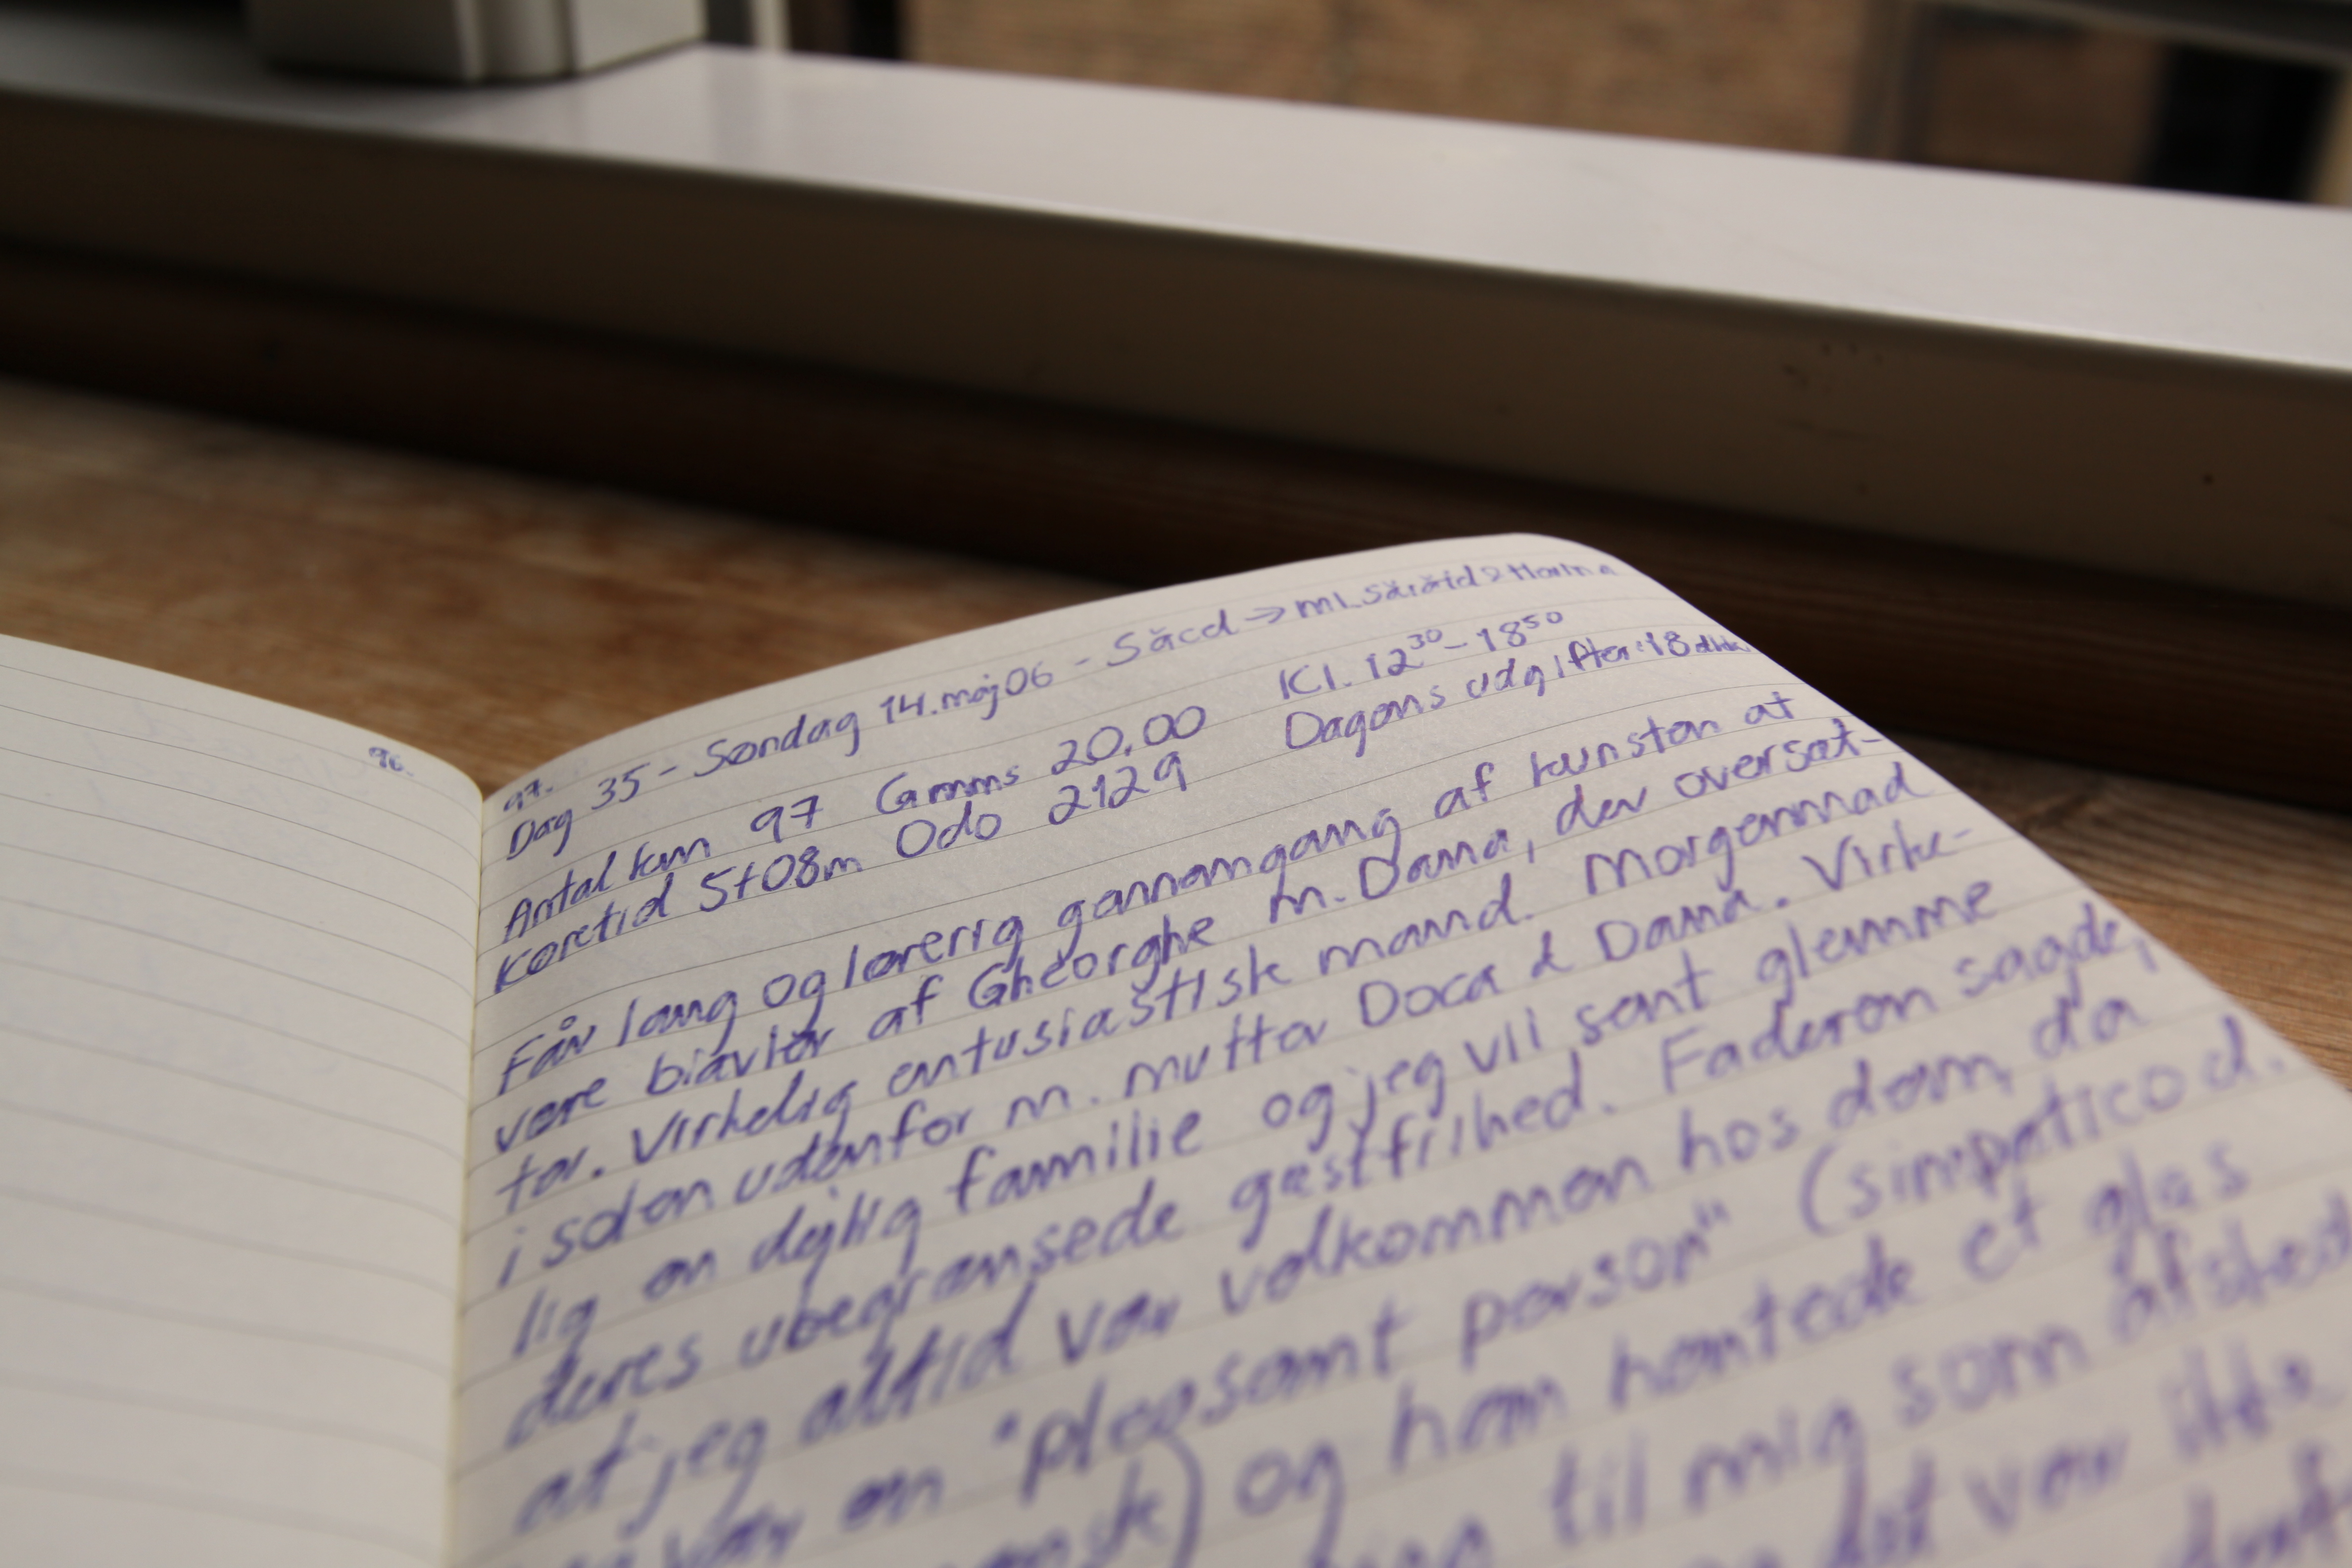 96.
97.
Dag 35 - Søndag 14. maj 06 - Săcel → ml. Sărăţel & Herina
Antal km 97 Gmms 20.00 Kl. 12³⁰ - 18⁵⁰
Køretid 5t08m Odo 2129 Dagens udgifter: 18 dkk
Får lang og lærerig gennemgang af kunsten at
være biavler af Gheorghe m. Dana, der oversæt-
ter. Virkelig entusiastisk mand. Morgenmad
i solen udenfor m. mutter Doca & Dana. Virke-
lig en dejlig familie og jeg vil sent glemme
deres ubegrænsede gæstfrihed. Faderen sagde,
at jeg altid var velkommen hos dem, da
var en "pleasant person" (simpatico el.
og han hentede et glas
til mig som afsked
det var ikke